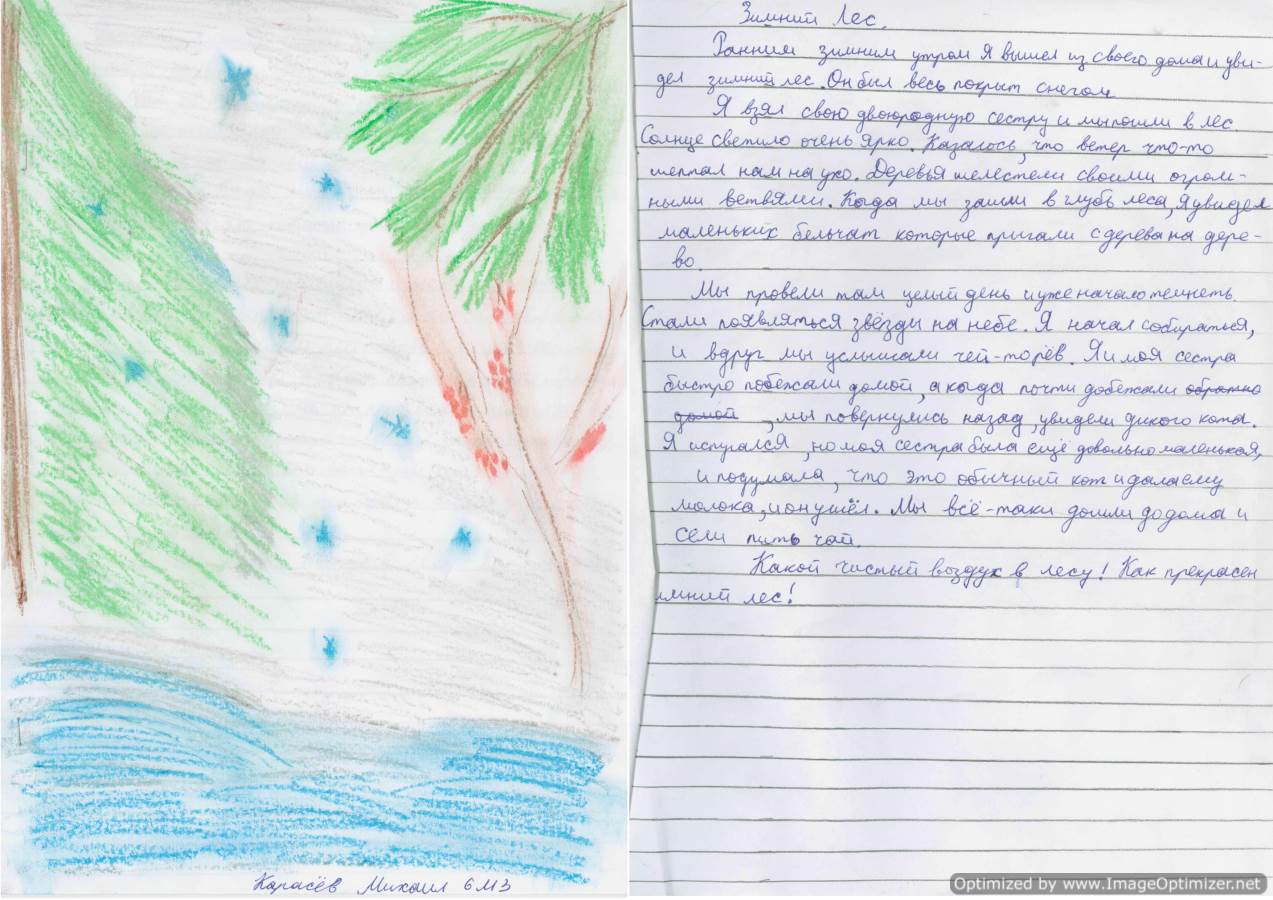 Зимний Лес.
Ранним зимним утром я вышел из своего дома и уви-
дел зимний лес. Он был весь покрыт снегом
Я взял свою двоюродную сестру и мы пошли в лес.
Солнце светило очень ярко. Казалось, что ветер что-то
шептал нам на ухо. Деревья шелестели своими огром-
ными ветвями. Когда мы зашли в глубь леса, я увидел
маленьких бельчат которые пригали с дерева на дере-
во.
Мы провели там целый день и уже начало темнеть.
Стали появляться звёзди на небе. Я начал собираться,
и вдруг мы услышали чей-то рёв. Я и моя сестра
быстро побежали домой, а когда почти добежали обратно
домой, мы повернулись назад, увидели дикого кота.
Я испугался, но моя сестра была ещё довольно маленькая,
и подумала, что это обычный кот и дала ему
молока, и он ушёл. Мы всё-таки дошли до дома и
сели пить чай.
Какой чистый воздух в лесу! Как прекрасен
имний лес!
Карасёв Михаил 6М3
Optimized by www.ImageOptimizer.net